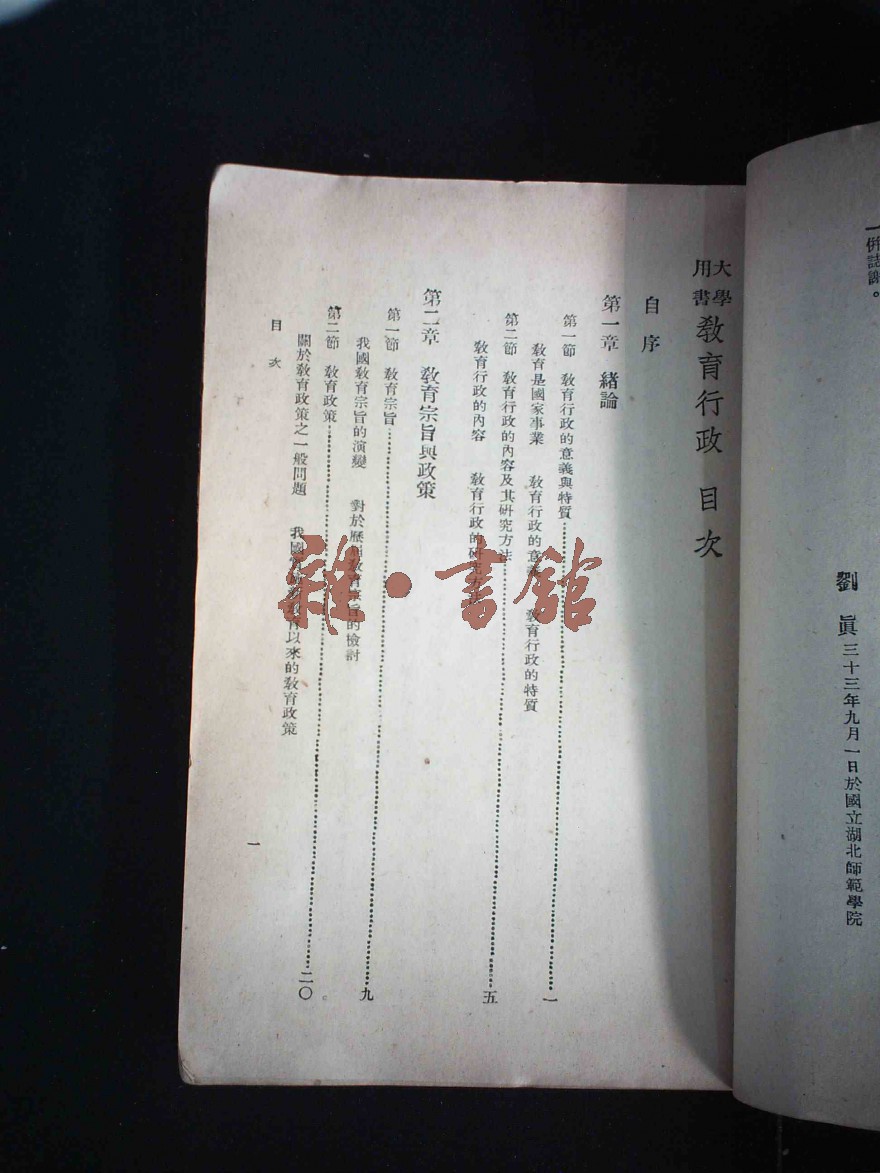 一併誌謝。
劉真 三十三年九月一日於國立湖北師範學院
大學用書 敎育行政 目次
自序
第一章 緒論
第一節 敎育行政的意義與特質……一
敎育是國家事業 敎育行政的意義 敎育行政的特質
第二節 敎育行政的內容及其研究方法……五
敎育行政的內容 敎育行政的研究方法
第二章 敎育宗旨與政策
第一節 敎育宗旨……九
我國敎育宗旨的演變 對於歷朝敎育宗旨的檢討
第二節 敎育政策……二〇
關於敎育政策之一般問題 我國 敎育以來的敎育政策
目次
一
雜·書館